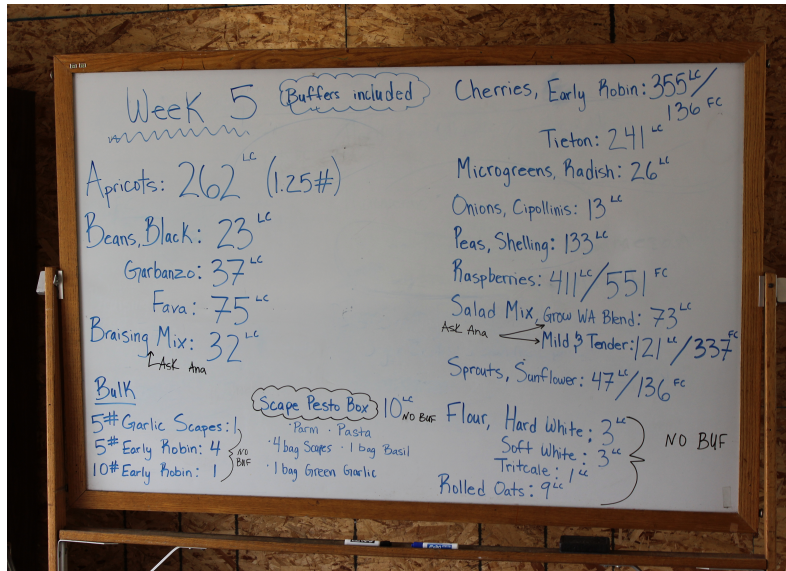 Week 5
Buffers included
Apricots: 262 LC (1.25#)
Beans, Black: 23 LC
Garbanzo: 37 LC
Fava: 75 LC
Braising Mix: 32 LC
Ask Ana
Bulk
5# Garlic Scapes: 1
5# Early Robin: 4
10# Early Robin: 1
NO BUF
Scape Pesto Box 10 LC NO BUF
· Parm · Pasta
· 4 bag Scapes · 1 bag Basil
· 1 bag Green Garlic
Cherries, Early Robin: 355 LC/
136 FC
Tieton: 241 LC
Microgreens, Radish: 26 LC
Onions, Cipollinis: 13 LC
Peas, Shelling: 133 LC
Raspberries: 411 LC/551 FC
Salad Mix, Grow WA Blend: 73 LC
Ask Ana
Mild & Tender: 121 LC/337 FC
Sprouts, Sunflower: 47 LC/136 FC
Flour, Hard White: 3 LC
Soft White: 3 LC
Tritcale: 1 LC
Rolled Oats: 9 LC
NO BUF